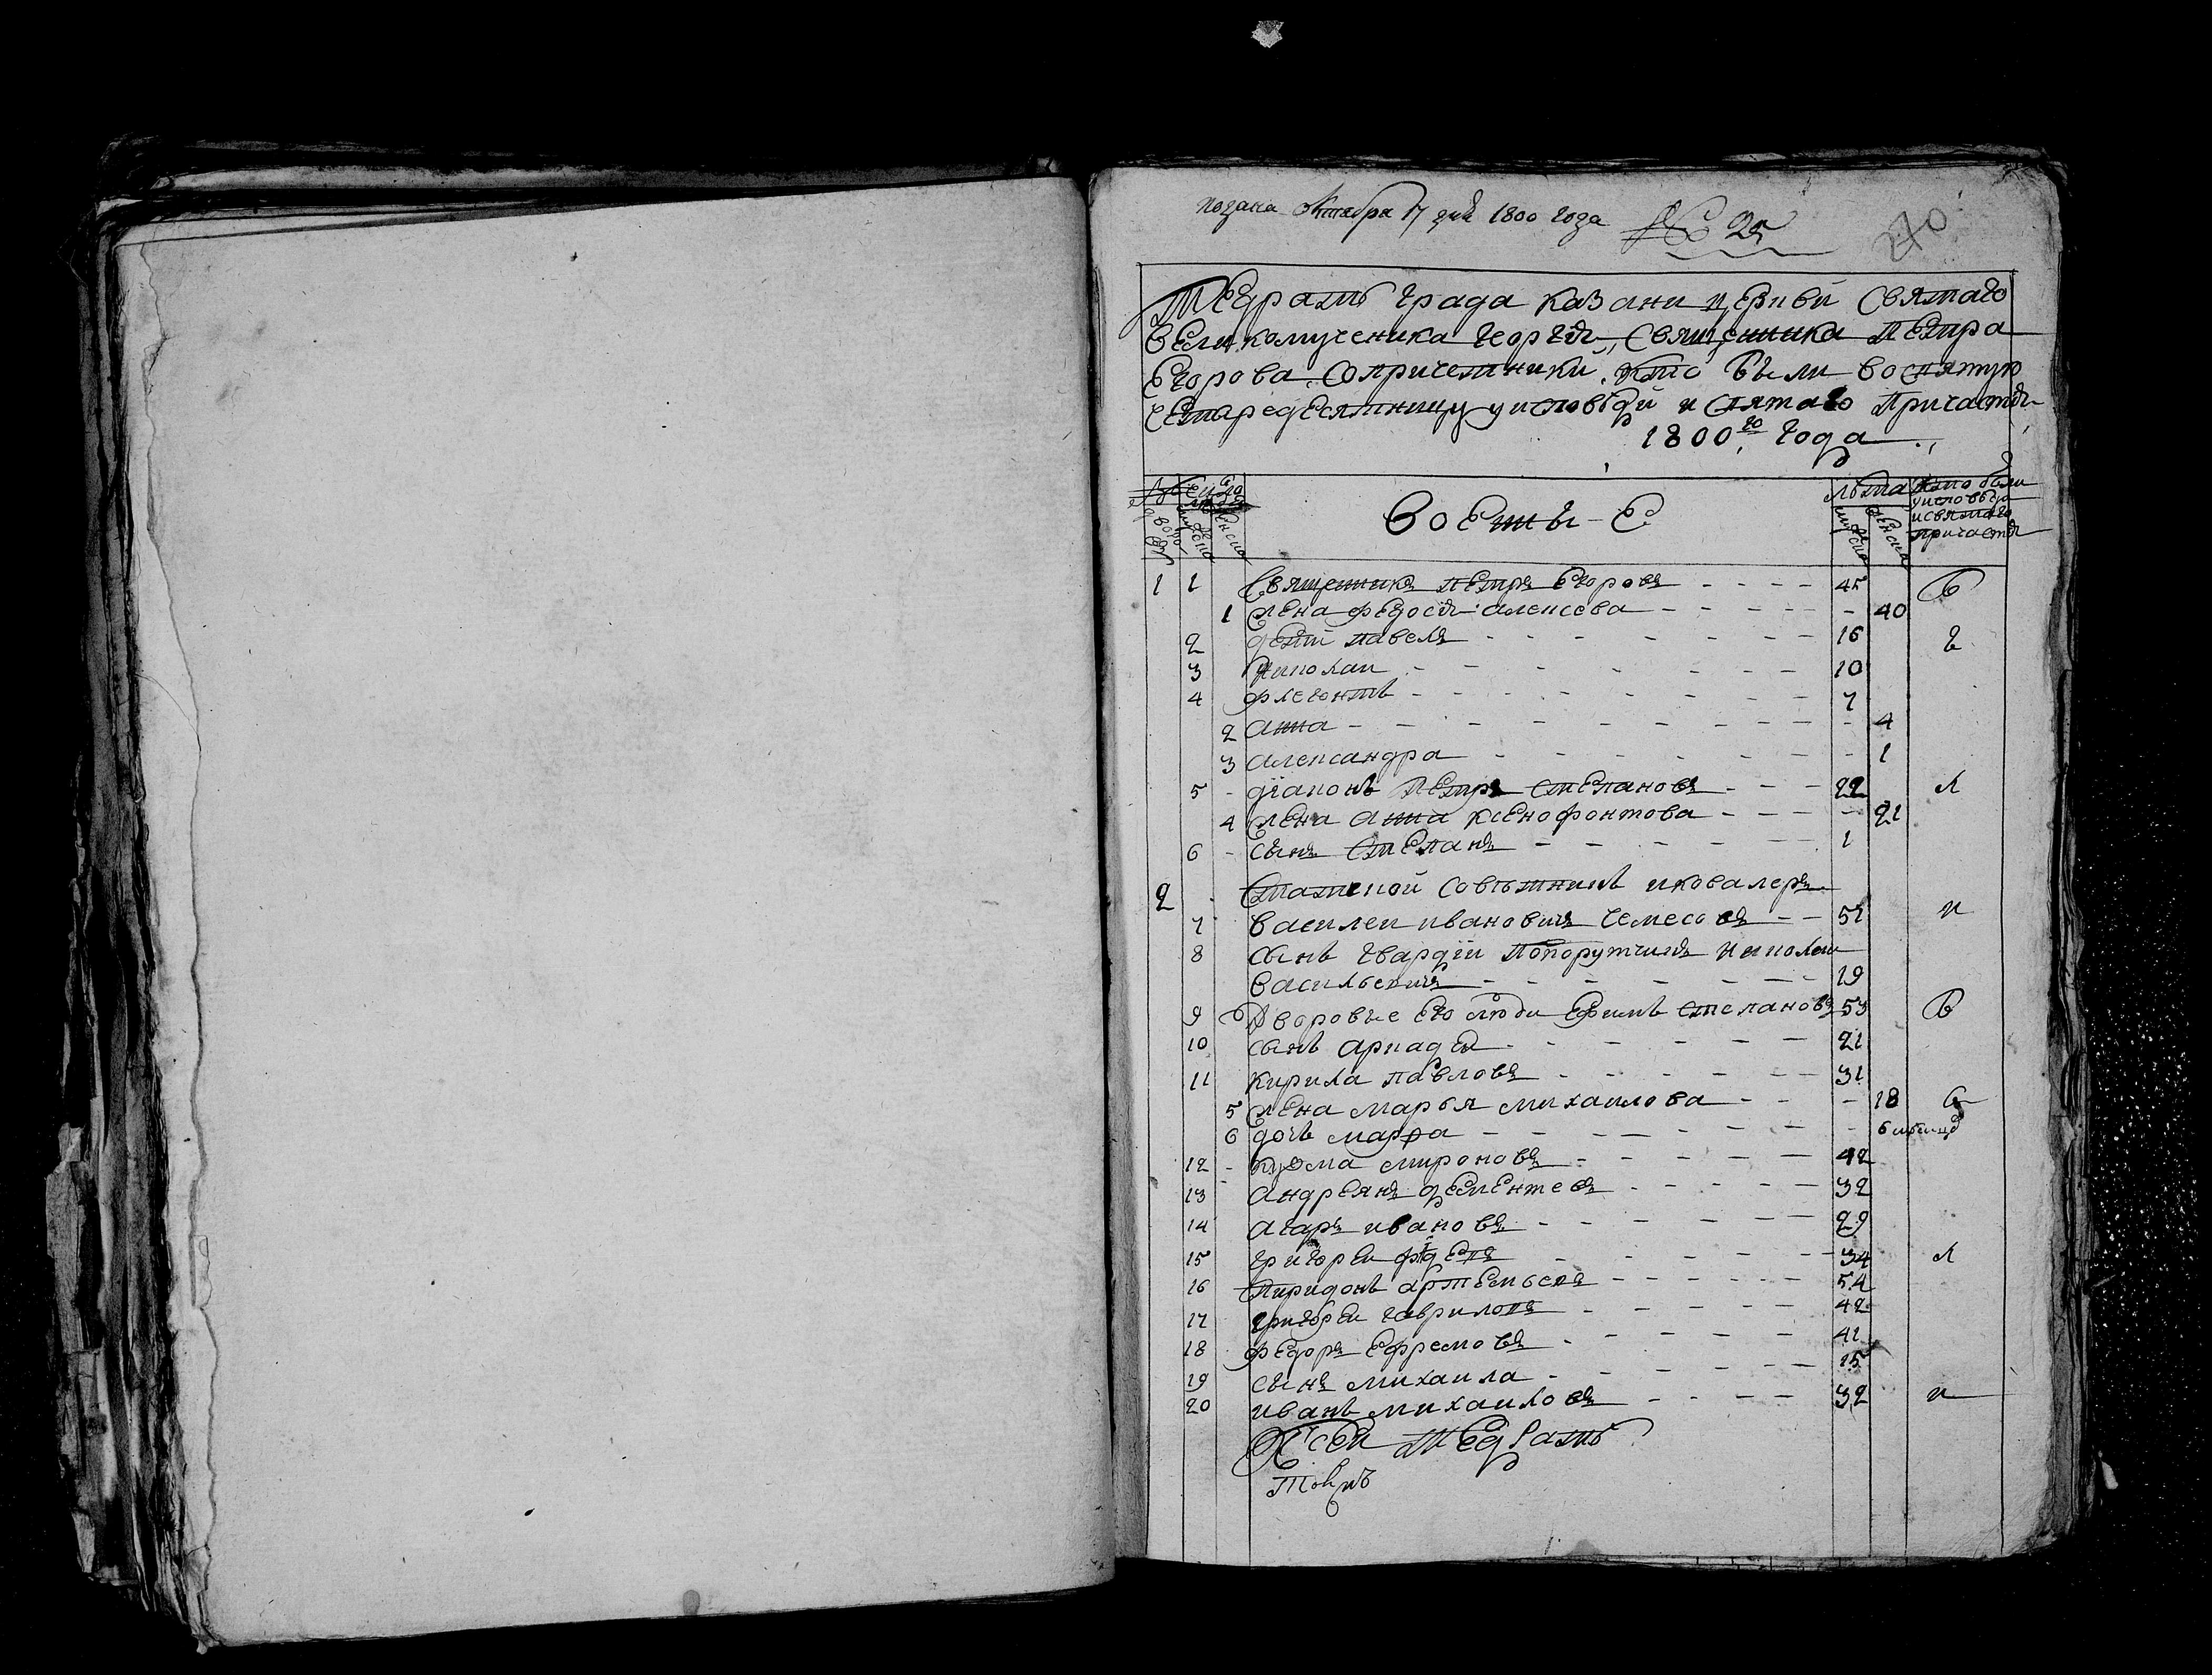 подана Октября 17 дня 1800 года № 25
270
Тетрать града казани церкви Святаго
великомученика георгия, Священника петра
Егорова Сопричетники кто были восвятую
четыредесятницу уисповеди и Святаго Причастия
1800го года
число
людей
лѣта
кто были
уисповеди
исвятаго
причастия
мужеска
женска
мужеска
женска
воеты-е
1 1 Священникъ петръ Егоровъ 45 в
1 жена федосья алексева 40
2 дети павелъ 16 г
3 николаи 10
4 флегонтъ 7
2 анна 4
3 александра 1
5 діаконъ петръ степановъ 22 л
4 жена анна ксенофонтова 21
6 сынъ степанъ 1
2 Статской советникъ иковалеръ
7 василеи ивановичь чемесовъ 51 и
8 сынъ гвардіи попорутчикъ николаи
васильевичь 19
9 Дворовые его люди ефимъ степановъ 53 в
10 сынъ аркадеи 21
11 кирила павловъ 31
5 жена марья михаилова 18
6 дочь марфа 6 месяцов
12 кузма мироновъ 42
13 андреянъ дементевъ 32
14 агаръ ивановъ 29
15 григореи 34 л
16 спиридонъ артемьевъ 54
17 григореи гавриловъ 42
18 федоръ ефремовъ 41
19 сынъ михаила 15
20 иванъ михаиловъ 32 и
Ксеи тетрать